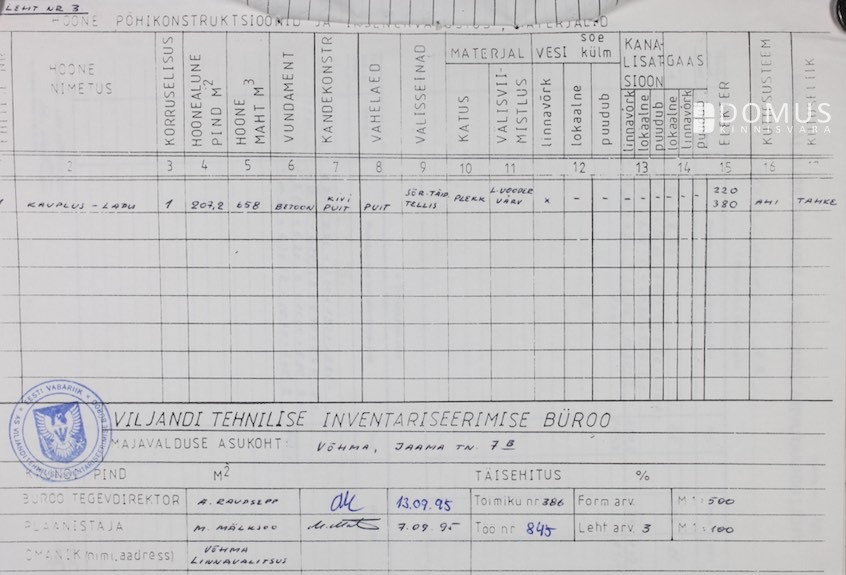 LEHT NR 3
HOONE PÕHIKONSTRUKTSIOONID JA
DOMUS
KINNISVARA
HOONE NIMETUS
KORRUSELISUS
HOONEALUNE PIND M²
HOONE MAHT M³
VUNDAMENT
KANDEKONSTR
VAHELAED
VÄLISSEINAD
MATERJAL
KATUS
VÄLISVII-
MISTLUS
VESI soe külm
linnavõrk
lokaalne
puudub
KANA-
LISAT-
SIOON
linnavõrk
lokaalne
puudub
GAAS
lokaalne
linnavõrk
KÜTTESÜSTEEM
2 3 4 5 6 7 8 9 10 11 12 13 14 15 16 17
KAUPLUS - LADU 1 207,2 658 BETOON KIVI PUIT PUIT TELLIS PLEKK L.VOODER VÄRV x - - - - - - - - 220 380 AHI TAHKE
EESTI VABARIIK
VILJANDI TEHNILISE INVENTARISEERIMISE BÜROO
MAJAVALDUSE ASUKOHT: VÕHMA, JAAMA TN. 7B
PIND M² TÄISEHITUS %
BÜROO TEGEVDIREKTOR A. RAUDSEPP 13.09.95 Toimiku nr 386 Form arv. M 1:500
PLAANISTAJA M. MÄLKSOO 7.09.95 Töö nr 845 Leht arv. 3 M 1:100
OMANIK (nimi, aadress) VÕHMA
LINNAVALITSUS